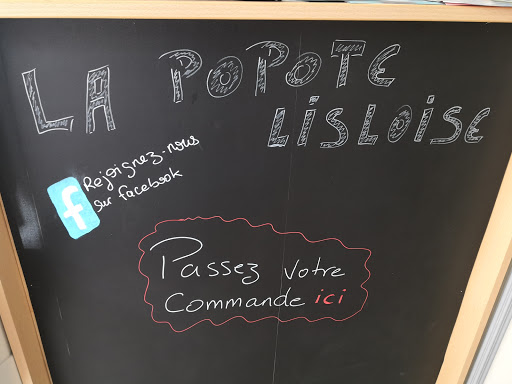 LA POPOTE
LISLOISE
Rejoignez-nous
sur facebook
f
Passez votre
commande ici